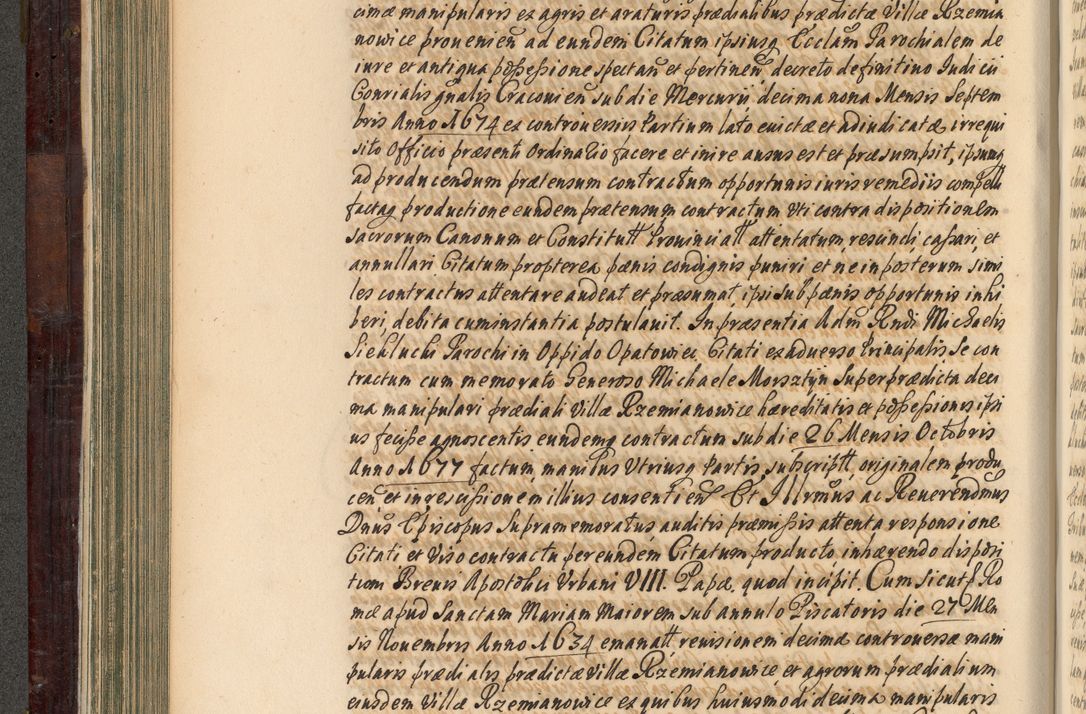 cimæ manipularis ex agris et araturis prædialibus prædictæ Villæ Rzemia
nowice provenien ad eundem Citatum ipsiusq Ecclam Parochialem de
iure et antiqua possessione spectan et pertinen, decreto definitivo Iudicii
Consialis gnalis Cracovien sub die Mercurii decima nona Mensis Septem
bris Anno 1674 ex controversiis Partium lato evictæ et adiudicatæ irrequi
sito Officio præsenti Ordinario facere et inire ausus est et præsumpsit, ipsumq
ad producendum prætensum contractum opportunis iuris remediis compelli
factaq productione eundem prætensum contractum Uti contra dispositionem
sacrorum Canonum et Constitutt Provinciatt attentatum rescindi cassari, et
annullari Citatum propterea pænis condignis puniri et ne in posterum simi
les contractus attentare audeat et præsumat, ipsi sub pænis opportunis inhi
beri, debita cum instantia postulavit. In præsentia Adm Rndi Michaelis
Siekluchi Parochi in Oppido Opatowiec, Citati ex adverso Principalis se con
tractum cum memorato Generoso Michaele Morsztyn Super prædicta deci
ma manipulari prædiali Villæ Rzemianowice hæreditatis et possessionis ipsi
us fecisse agnoscentis eundemq contractum sub die 26 Mensis Octobris
Anno 1677 factum, manibus Utriusq Partis subscriptt, originalem produ
cen et in rescissionem illius consentien Et Illrmus ac Reverendmus
Dnus Episcopus Supramemoratus auditis præmissis attenta responsione
Citati et Viso contractu per eundem Citatum producto inhærendo disposi
tioni Brevis Apostolici Urbani VIII. Papæ, quod incipit. Cum sicut Ro
mæ apud Sanctam Mariam Maiorem sub annulo Piscatoris die 27 Men
sis Novembris Anno 1634 emanatt revisionem decimæ controversæ mani
pularis prædialis prædictæ Villæ Rzemianowice, et agrorum prædialium
eiusdem Villæ Rzemianowice ex quibus huiusmodi decima manipularis